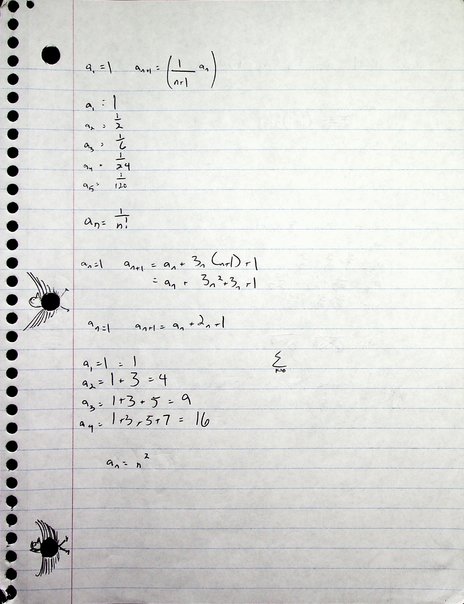 a₁ = 1 aₙ₊₁ = (1/(n+1) aₙ)
a₁ = 1
a₂ = 1/2
a₃ = 1/6
a₄ = 1/24
a₅ = 1/120
aₙ = 1/n!
aₙ = 1 aₙ₊₁ = aₙ + 3n(n+1)+1
= aₙ + 3n²+3n+1
aₙ = 1 aₙ₊₁ = aₙ + 2n + 1
a₁ = 1 = 1
a₂ = 1 + 3 = 4
a₃ = 1 + 3 + 5 = 9
a₄ = 1 + 3 + 5 + 7 = 16
Σ
aₙ = n²